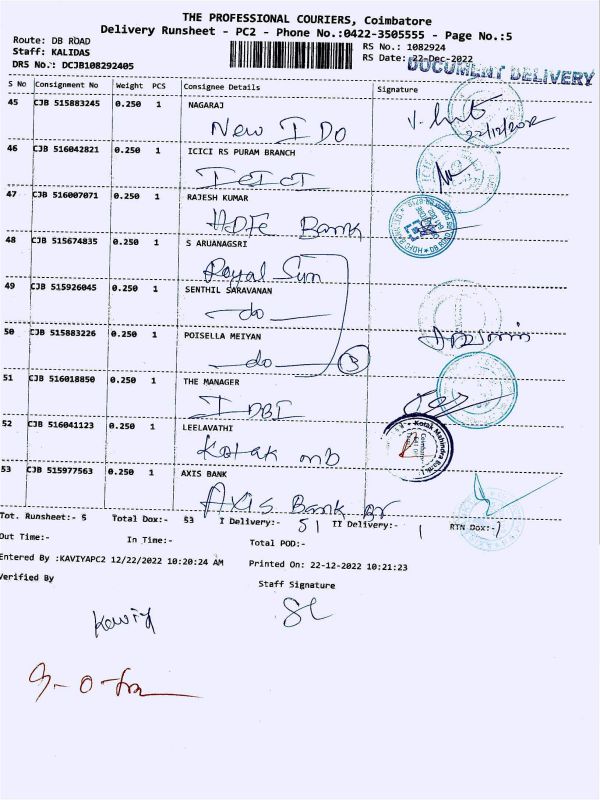 THE PROFESSIONAL COURIERS, Coimbatore
Delivery Runsheet - PC2 - Phone No.:0422-3505555 - Page No.:5
Route: DB ROAD
RS No.: 1082924
Staff: KALIDAS
RS Date: 22-Dec-2022
DRS No.: DCJB108292405
DOCUMENT DELIVERY
S No Consignment No Weight PCS Consignee Details Signature
45 CJB 515883245 0.250 1 NAGARAJ
New I Do
22/12/2022
46 CJB 516042821 0.250 1 ICICI RS PURAM BRANCH
ICICI
47 CJB 516007071 0.250 1 RAJESH KUMAR
HDFC Bank
48 CJB 515674835 0.250 1 S ARUANAGSRI
Royal Sun
49 CJB 515926045 0.250 1 SENTHIL SARAVANAN
do
50 CJB 515883226 0.250 1 POISELLA MEIYAN
do 3
51 CJB 516018850 0.250 1 THE MANAGER
IDBI
52 CJB 516041123 0.250 1 LEELAVATHI
Kotak mb
Kotak Mahindra Bank
53 CJB 515977563 0.250 1 AXIS BANK
AXIS Bank br
Tot. Runsheet:- 5 Total Dox:- 53 I Delivery:- 51 II Delivery:- 1 RTN Dox:-1
Out Time:- In Time:- Total POD:-
Entered By :KAVIYAPC2 12/22/2022 10:20:24 AM Printed On: 22-12-2022 10:21:23
Verified By Staff Signature